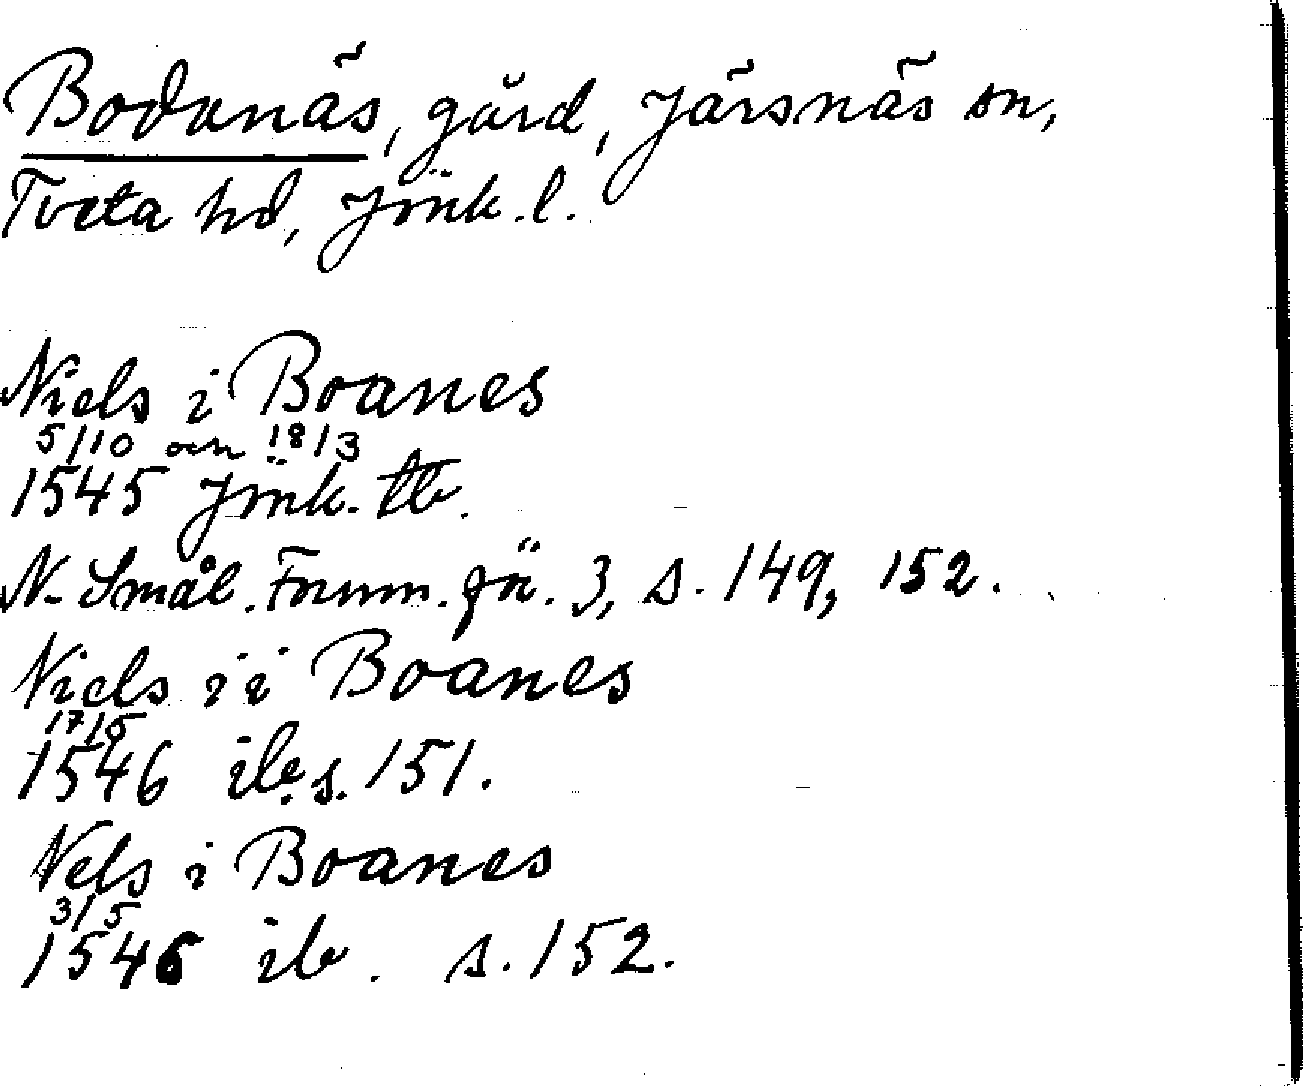 Bodanäs, gård, Järsnäs sn,
Tveta hd, Jönk. l.
Niels i Boanes
5/10 och 18/3
1545 Jönk. tb.
N. Smål. Fornm. fö. 3, s. 149, 152.
Niels ii Boanes
17/5
1546 ib. s. 151.
Nels i Boanes
3/5
1546 ib. s. 152.